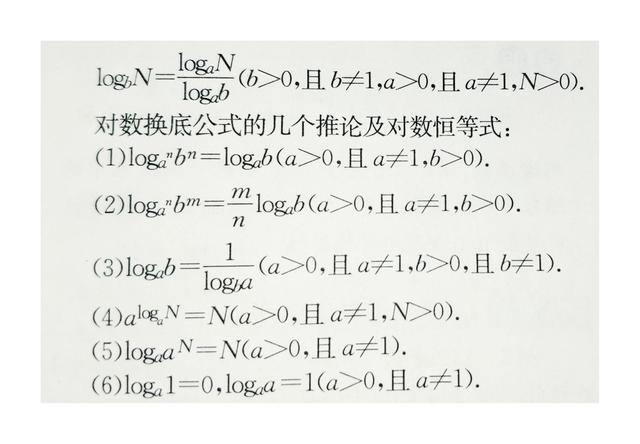 log_b N=\frac{log_a N}{log_a b}(b>0,且 b≠1,a>0,且 a≠1,N>0).
对数换底公式的几个推论及对数恒等式:
(1)log_{a^n} b^n=log_a b(a>0,且 a≠1,b>0).
(2)log_{a^n} b^m=\frac{m}{n}log_a b(a>0,且 a≠1,b>0).
(3)log_a b=\frac{1}{log_b a}(a>0,且 a≠1,b>0,且 b≠1).
(4)a^{log_a N}=N(a>0,且 a≠1,N>0).
(5)log_a a^N=N(a>0,且 a≠1).
(6)log_a 1=0,log_a a=1(a>0,且 a≠1).